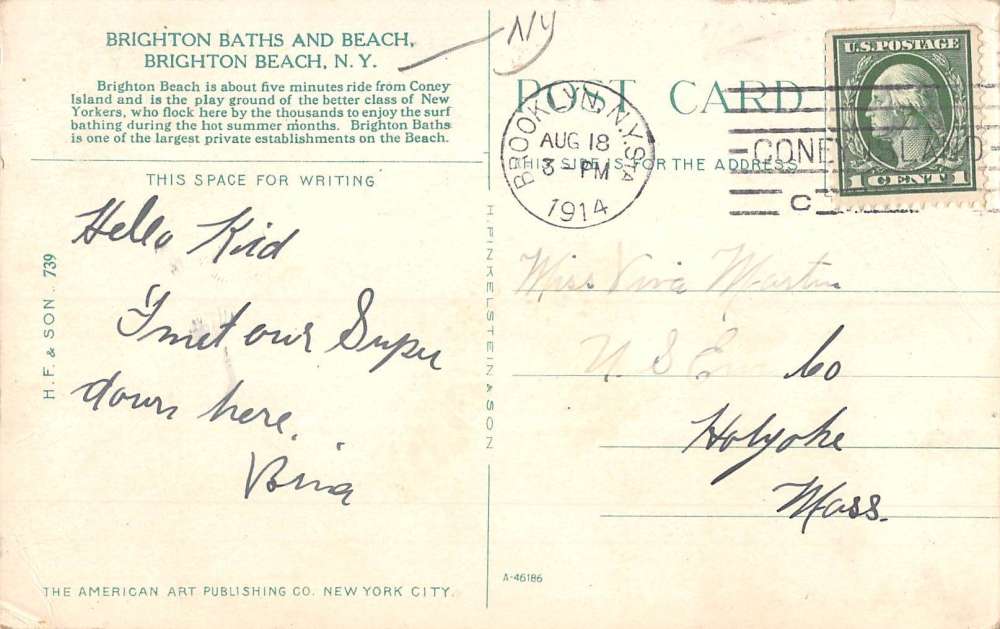 BRIGHTON BATHS AND BEACH,
BRIGHTON BEACH, N. Y.
Brighton Beach is about five minutes ride from Coney
Island and is the play ground of the better class of New
Yorkers, who flock here by the thousands to enjoy the surf
bathing during the hot summer months. Brighton Baths
is one of the largest private establishments on the Beach.
THIS SPACE FOR WRITING
Hello Kid
I met our Super
down here.
H. F. & SON. 739
THE AMERICAN ART PUBLISHING CO. NEW YORK CITY.
H. FINKELSTEIN & SON
NY
POST CARD
THIS SIDE IS FOR THE ADDRESS
BROOKLYN, N.Y. STA
AUG 18
3 - PM
1914
CONEY ISLAND
C
U.S. POSTAGE
1 CENT 1
Miss Viva Martin
U S E Co
Holyoke
Mass.
A-46186